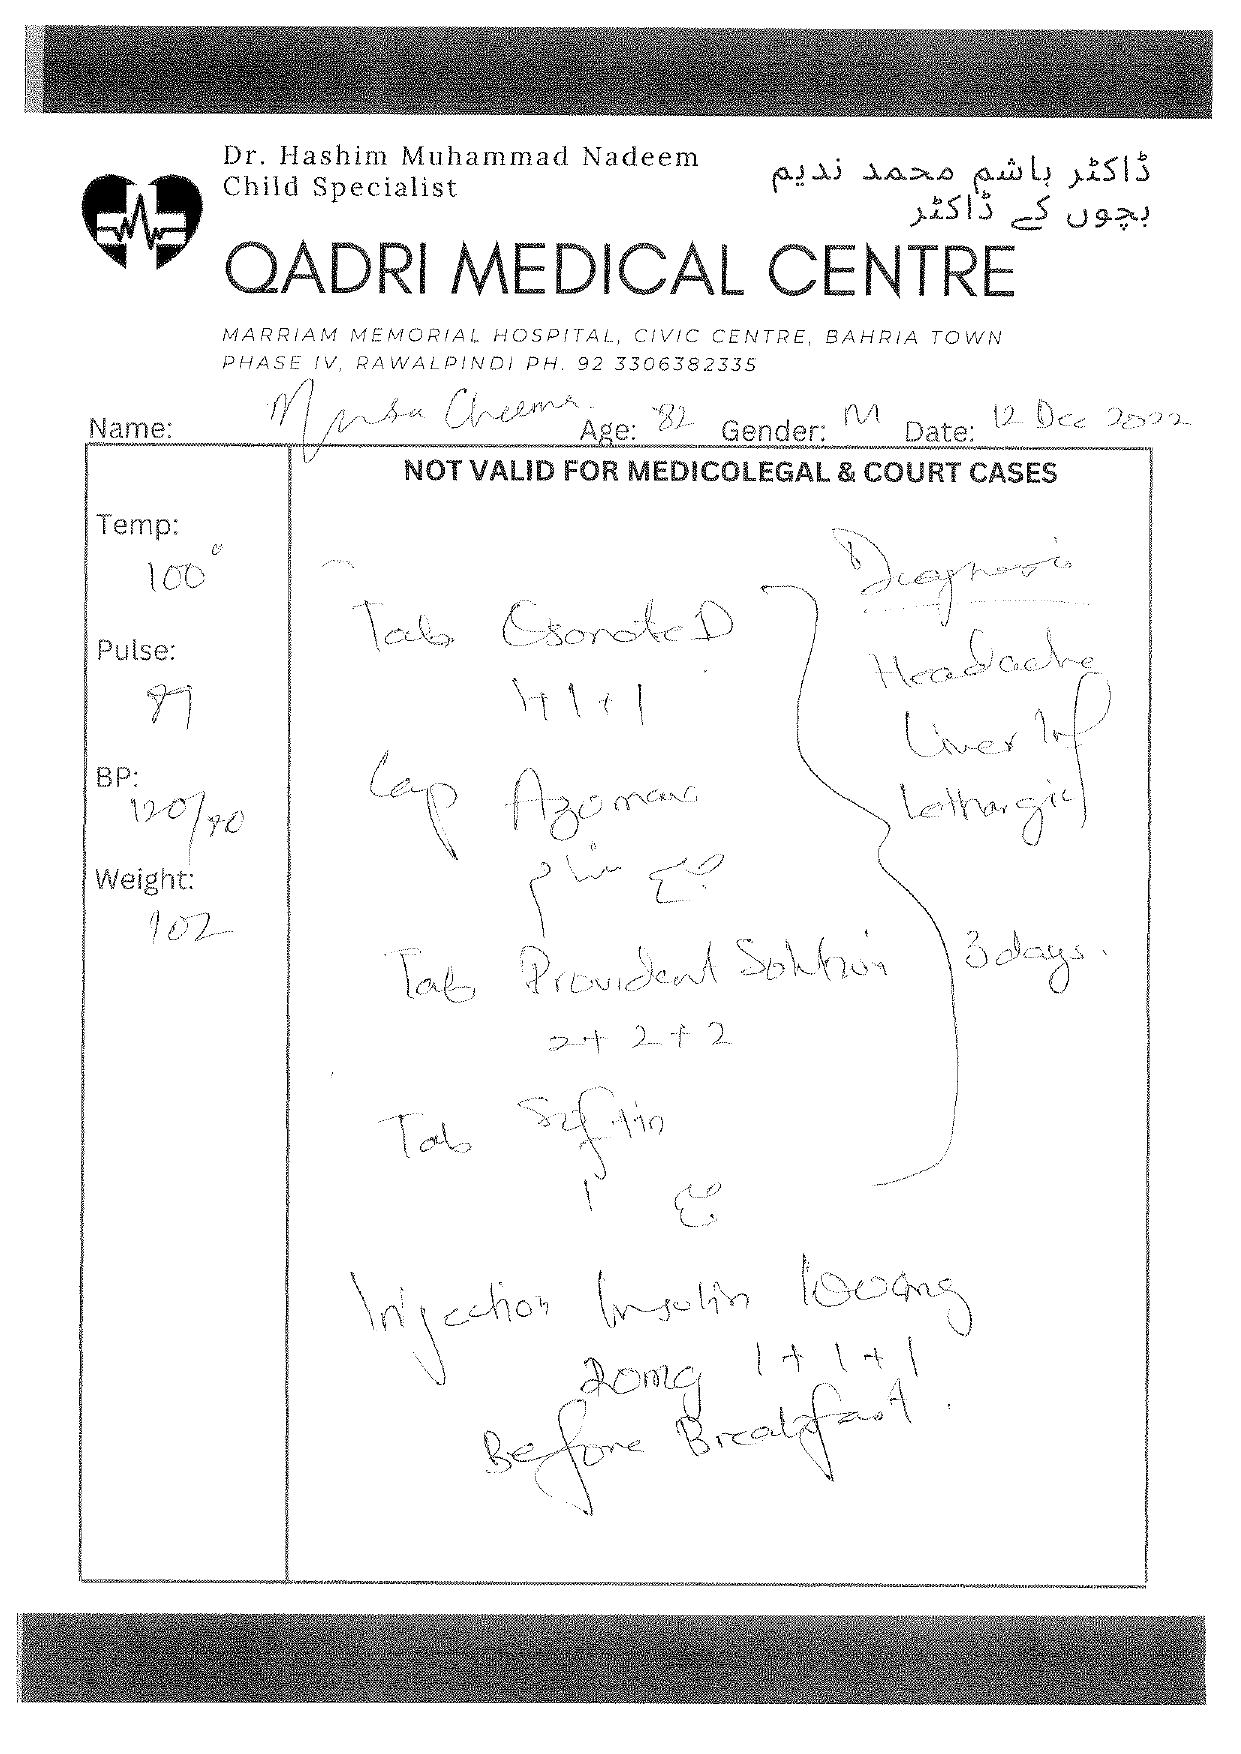 Dr. Hashim Muhammad Nadeem
Child Specialist
ڈاکٹر ہاشم محمد ندیم
بچوں کے ڈاکٹر
QADRI MEDICAL CENTRE
MARRIAM MEMORIAL HOSPITAL, CIVIC CENTRE, BAHRIA TOWN
PHASE IV, RAWALPINDI PH. 92 3306382335
Name: Musa Cheema Age: 82 Gender: M Date: 12 Dec 2022
NOT VALID FOR MEDICOLEGAL & COURT CASES
Temp:
100°
Pulse:
BP:
120/90
Weight:
102
Diagnosis
Headache
Liver Inf
Lethargic
Tab D
1+1+1
Cap Azomax
صبح شام
Tab Provident Solution
2+2+2
3 days.
Tab
1 صبح
Injection Insulin
20mg 1+1+1
Before Breakfast.